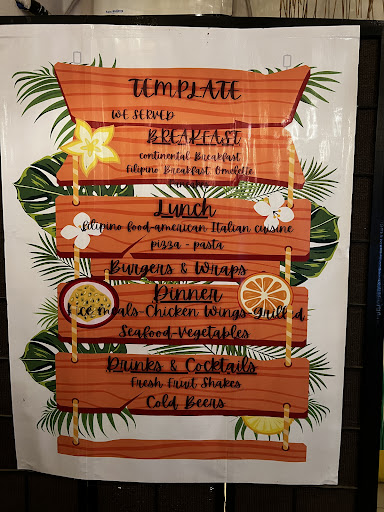 TEMPLATE
WE SERVED
BREAKFAST
Continental Breakfast
Filipino Breakfast Omelette
Lunch
Filipino food-american Italian cuisine
pizza - pasta
Burgers & Wraps
Dinner
Rice meals-Chicken Wings-Grilled
Seafood-Vegetables
Drinks & Cocktails
Fresh Fruit Shakes
Cold Beers